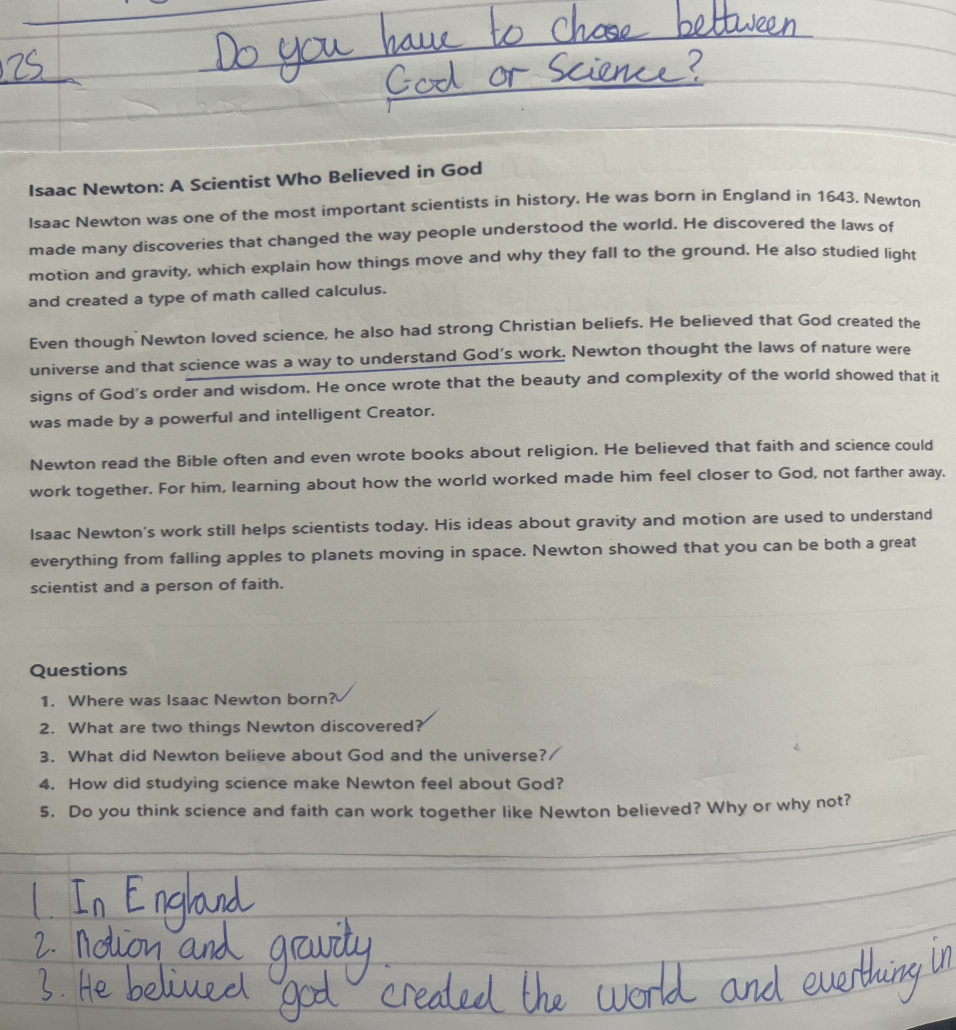 Do you have to chose bettween
25
God or Science?
Isaac Newton: A Scientist Who Believed in God
Isaac Newton was one of the most important scientists in history. He was born in England in 1643. Newton
made many discoveries that changed the way people understood the world. He discovered the laws of
motion and gravity, which explain how things move and why they fall to the ground. He also studied light
and created a type of math called calculus.
Even though Newton loved science, he also had strong Christian beliefs. He believed that God created the
universe and that science was a way to understand God's work. Newton thought the laws of nature were
signs of God's order and wisdom. He once wrote that the beauty and complexity of the world showed that it
was made by a powerful and intelligent Creator.
Newton read the Bible often and even wrote books about religion. He believed that faith and science could
work together. For him, learning about how the world worked made him feel closer to God, not farther away.
Isaac Newton's work still helps scientists today. His ideas about gravity and motion are used to understand
everything from falling apples to planets moving in space. Newton showed that you can be both a great
scientist and a person of faith.
Questions
1. Where was Isaac Newton born?
2. What are two things Newton discovered?
3. What did Newton believe about God and the universe?
4. How did studying science make Newton feel about God?
5. Do you think science and faith can work together like Newton believed? Why or why not?
1. In England
2. Motion and gravity.
3. He belived god created the world and everthing in